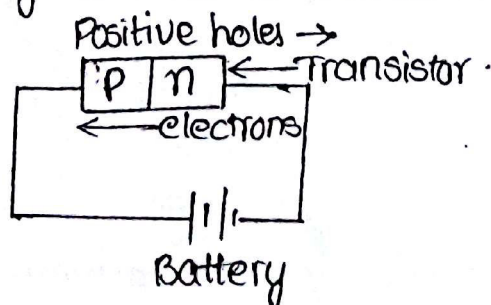 Positive holes →
P n ← Transistor.
← electrons
Battery